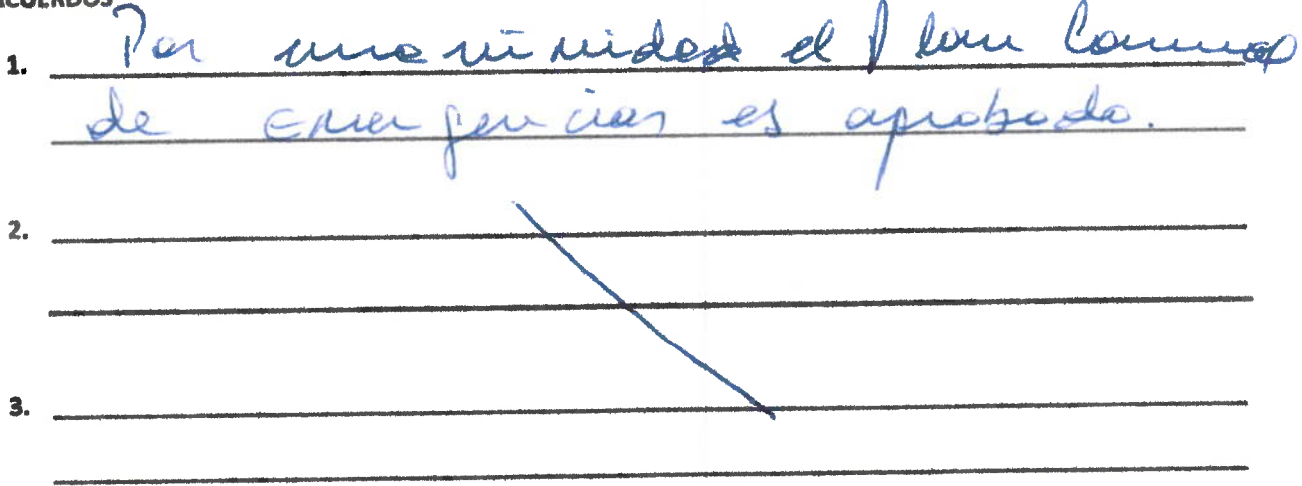 ACUERDOS
1. Por unanimidad el Plan Comunal
de Emergencias es aprobado.
2.
3.